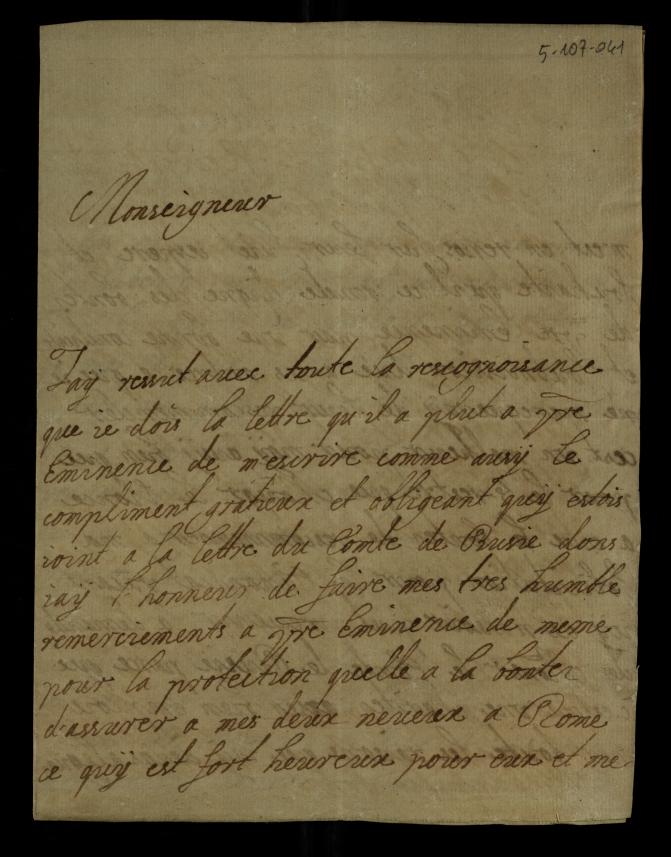 5-107-041
Monseigneur
Jaÿ ressut avec toute la rescognoisance
que ie dois la lettre qu'il a plut a vre
Eminence de m'escrire comme ausÿ le
compliment gratieux et obligeant quÿ estois
ioint a la lettre du Comte de Rusie dons
iaÿ l'honneur de faire mes tres humble
remerciements a vre Eminence de meme
pour la protection quelle a la bonter
d'assurer a mes deux neveux a Rome
ce quÿ est fort heureux pour eux et me